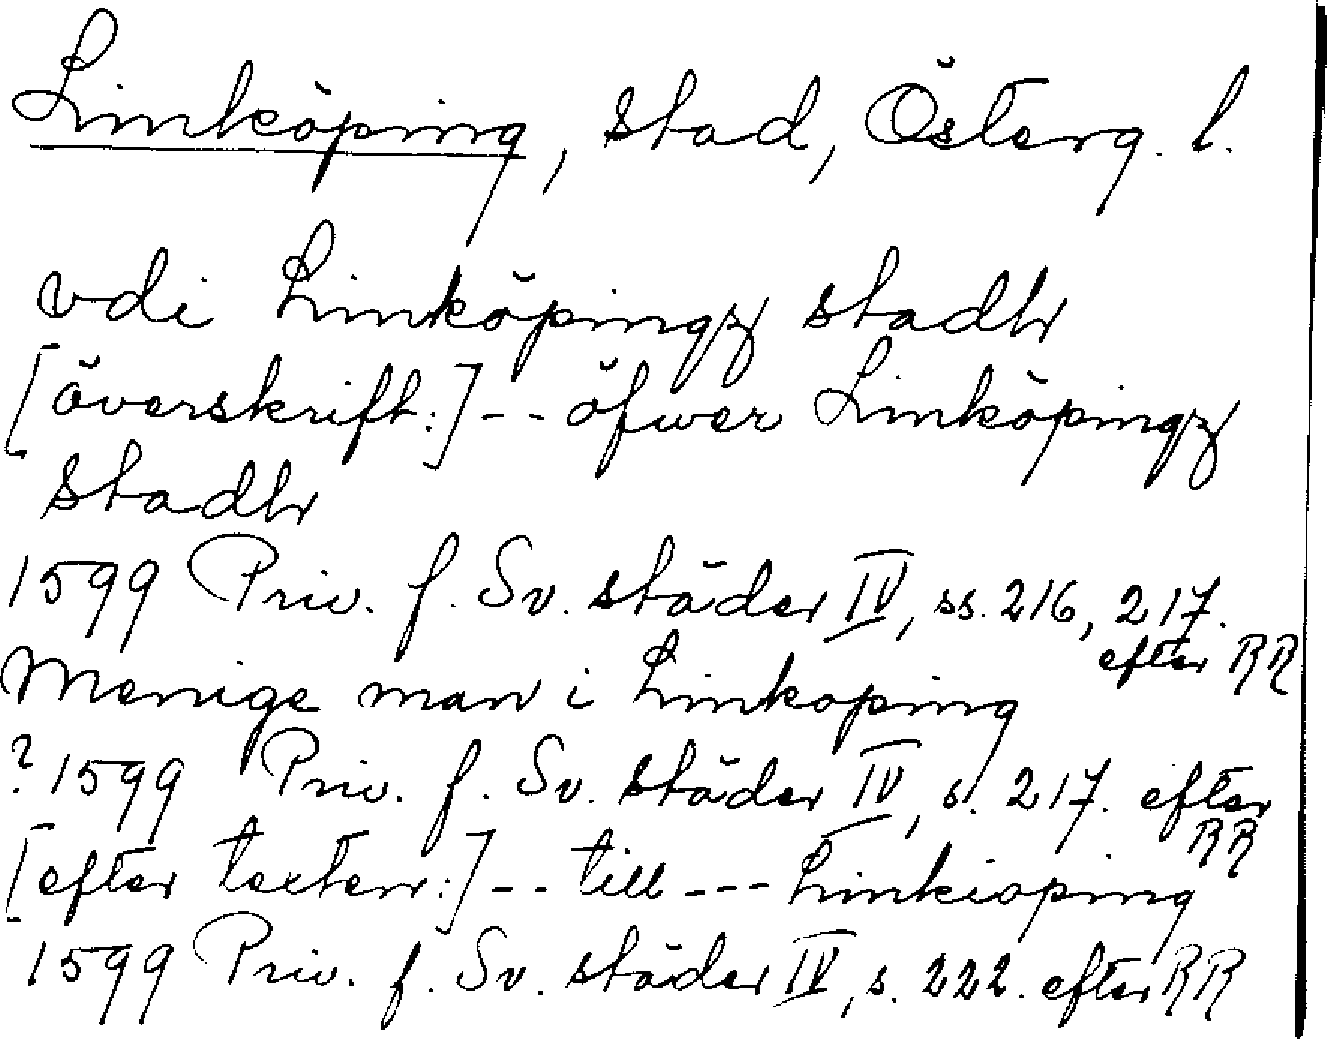 Linköping, stad, Österg. l.
vdi Linköpingz stadh
[överskrift:] -- öfwer Linköpingz
stadh
1599 Priv. f. Sv. städer IV, ss. 216, 217.
efter RR
Menige man i Linkoping
? 1599 Priv. f. Sv. städer IV, s. 217. efter
RR
[efter texten:] -- till --- Linkioping
1599 Priv. f. Sv. städer IV, s. 222. efter RR